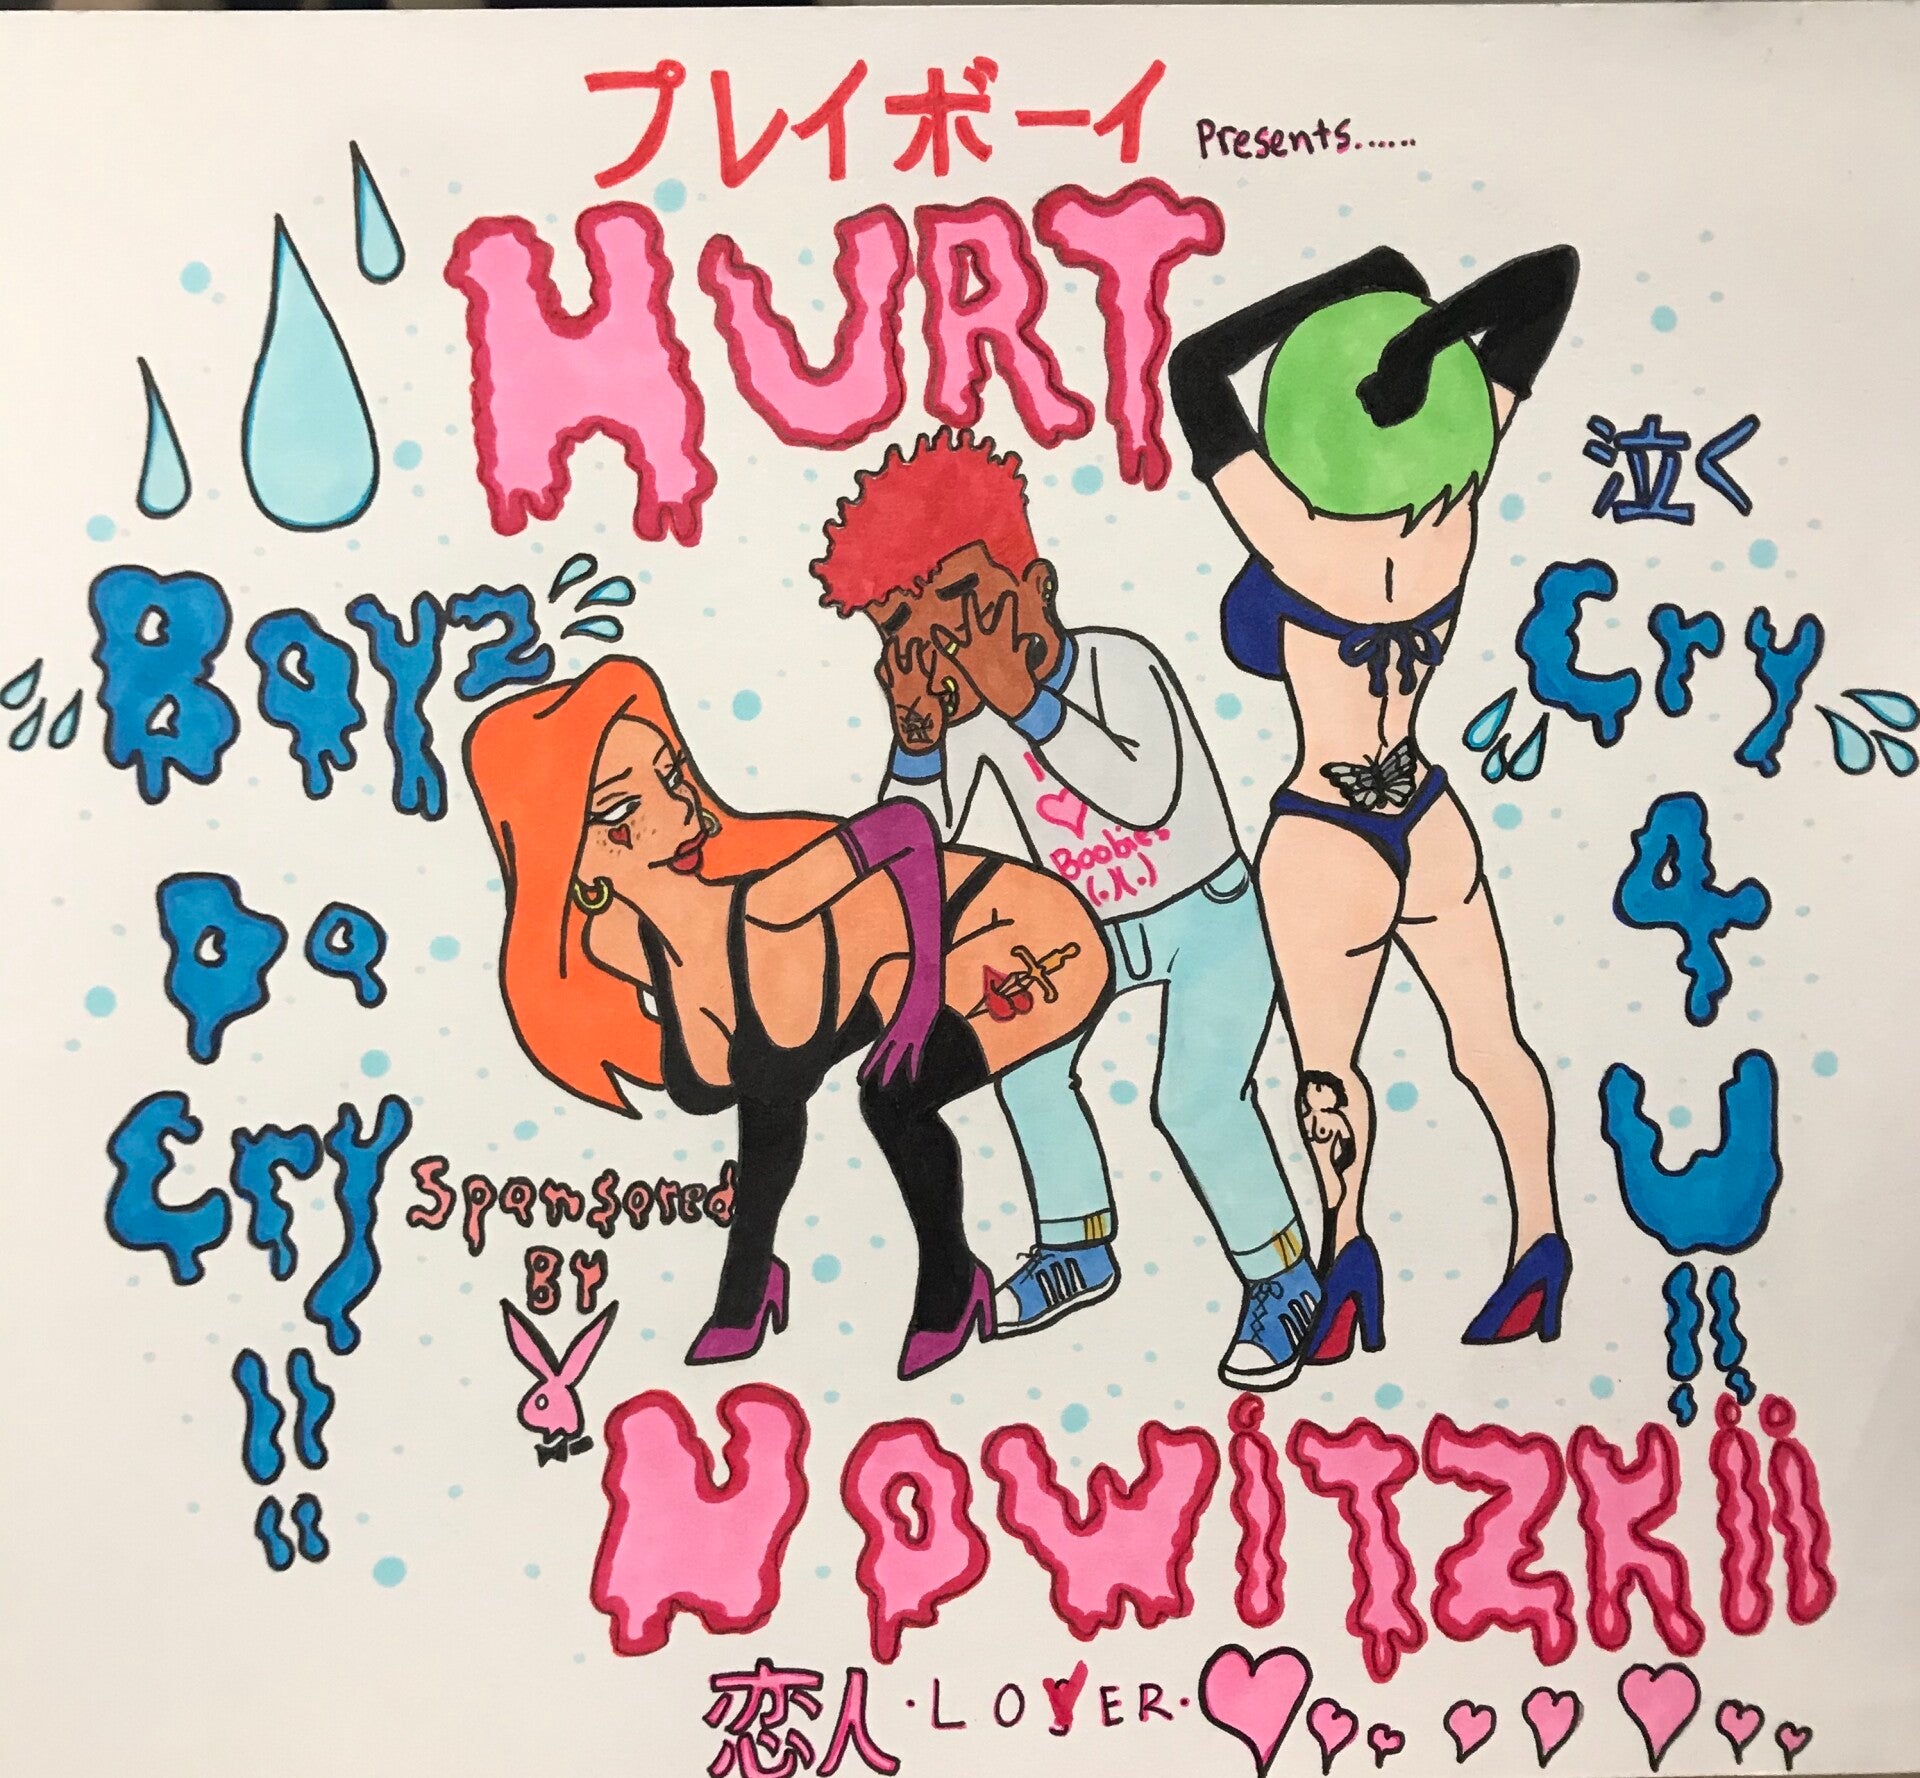 プレイボーイ Presents......
HURT
泣く
Boyz
Cry
Do
4
Cry
U
!!
!!
I ♥
Boobies
(.)(.)
Sponsored
BY
NOWiTZKii
恋人・LOVER・